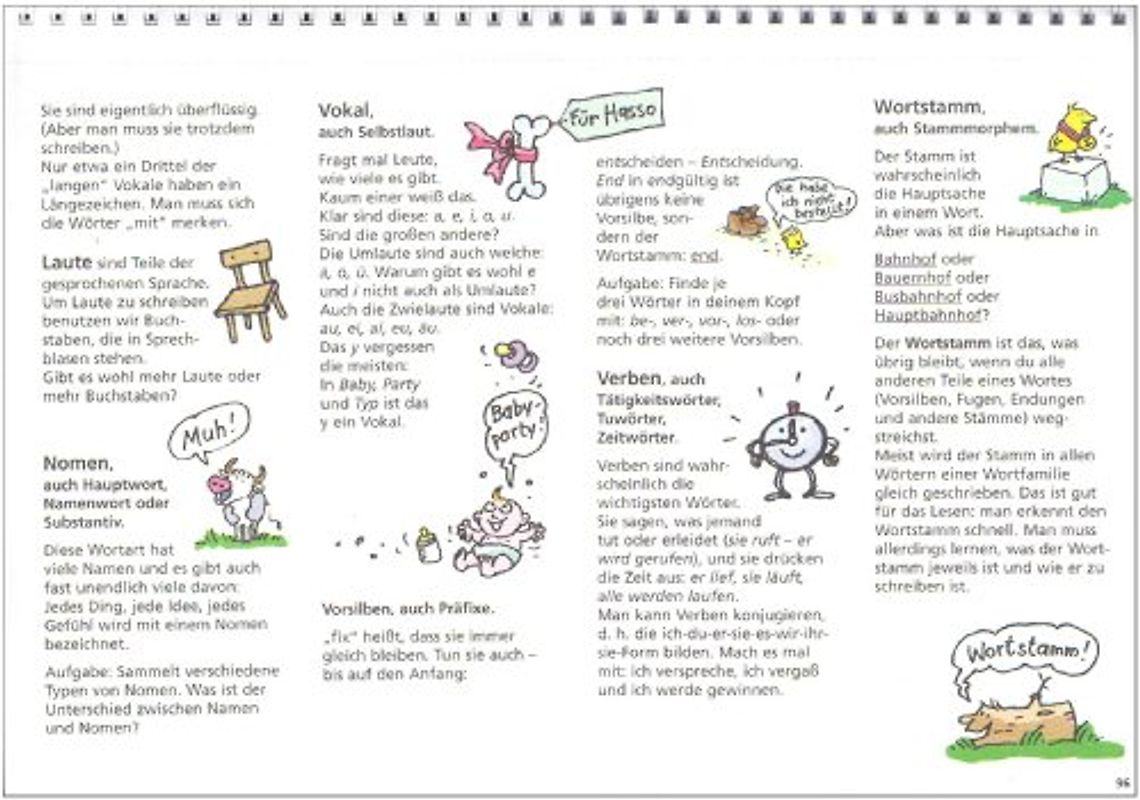 Sie sind eigentlich überflüssig.
(Aber man muss sie trotzdem
schreiben.)
Nur etwa ein Drittel der
„langen“ Vokale haben ein
Längezeichen. Man muss sich
die Wörter „mit“ merken.
Laute sind Teile der
gesprochenen Sprache.
Um Laute zu schreiben
benutzen wir Buch-
staben, die in Sprech-
blasen stehen.
Gibt es wohl mehr Laute oder
mehr Buchstaben?
Muh!
Nomen,
auch Hauptwort,
Namenwort oder
Substantiv.
Diese Wortart hat
viele Namen und es gibt auch
fast unendlich viele davon:
Jedes Ding, jede Idee, jedes
Gefühl wird mit einem Nomen
bezeichnet.
Aufgabe: Sammelt verschiedene
Typen von Nomen. Was ist der
Unterschied zwischen Namen
und Nomen?
Vokal,
auch Selbstlaut.
Für Hasso
Fragt mal Leute,
wie viele es gibt.
Kaum einer weiß das.
Klar sind diese: a, e, i, o, u.
Sind die großen andere?
Die Umlaute sind auch welche:
ä, ö, ü. Warum gibt es wohl e
und i nicht auch als Umlaute?
Auch die Zwielaute sind Vokale:
au, ei, ai, eu, äu.
Das y vergessen
die meisten:
In Baby, Party
und Typ ist das
y ein Vokal.
Baby-
party!
Vorsilben, auch Präfixe.
„fix“ heißt, dass sie immer
gleich bleiben. Tun sie auch –
bis auf den Anfang:
entscheiden – Entscheidung.
End in endgültig ist
übrigens keine
Vorsilbe, son-
dern der
Wortstamm: end.
Die habe
ich nicht
bestellt!
Aufgabe: Finde je
drei Wörter in deinem Kopf
mit: be-, ver-, vor-, los- oder
noch drei weitere Vorsilben.
Verben, auch
Tätigkeitswörter,
Tuwörter,
Zeitwörter.
Verben sind wahr-
scheinlich die
wichtigsten Wörter.
Sie sagen, was jemand
tut oder erleidet (sie ruft – er
wird gerufen), und sie drücken
die Zeit aus: er lief, sie läuft,
alle werden laufen.
Man kann Verben konjugieren,
d. h. die ich-du-er-sie-es-wir-ihr-
sie-Form bilden. Mach es mal
mit: ich verspreche, ich vergaß
und ich werde gewinnen.
Wortstamm,
auch Stammmorphem.
Der Stamm ist
wahrscheinlich
die Hauptsache
in einem Wort.
Aber was ist die Hauptsache in
Bahnhof oder
Bauernhof oder
Busbahnhof oder
Hauptbahnhof?
Der Wortstamm ist das, was
übrig bleibt, wenn du alle
anderen Teile eines Wortes
(Vorsilben, Fugen, Endungen
und andere Stämme) weg-
streichst.
Meist wird der Stamm in allen
Wörtern einer Wortfamilie
gleich geschrieben. Das ist gut
für das Lesen: man erkennt den
Wortstamm schnell. Man muss
allerdings lernen, was der Wort-
stamm jeweils ist und wie er zu
schreiben ist.
Wortstamm!
96